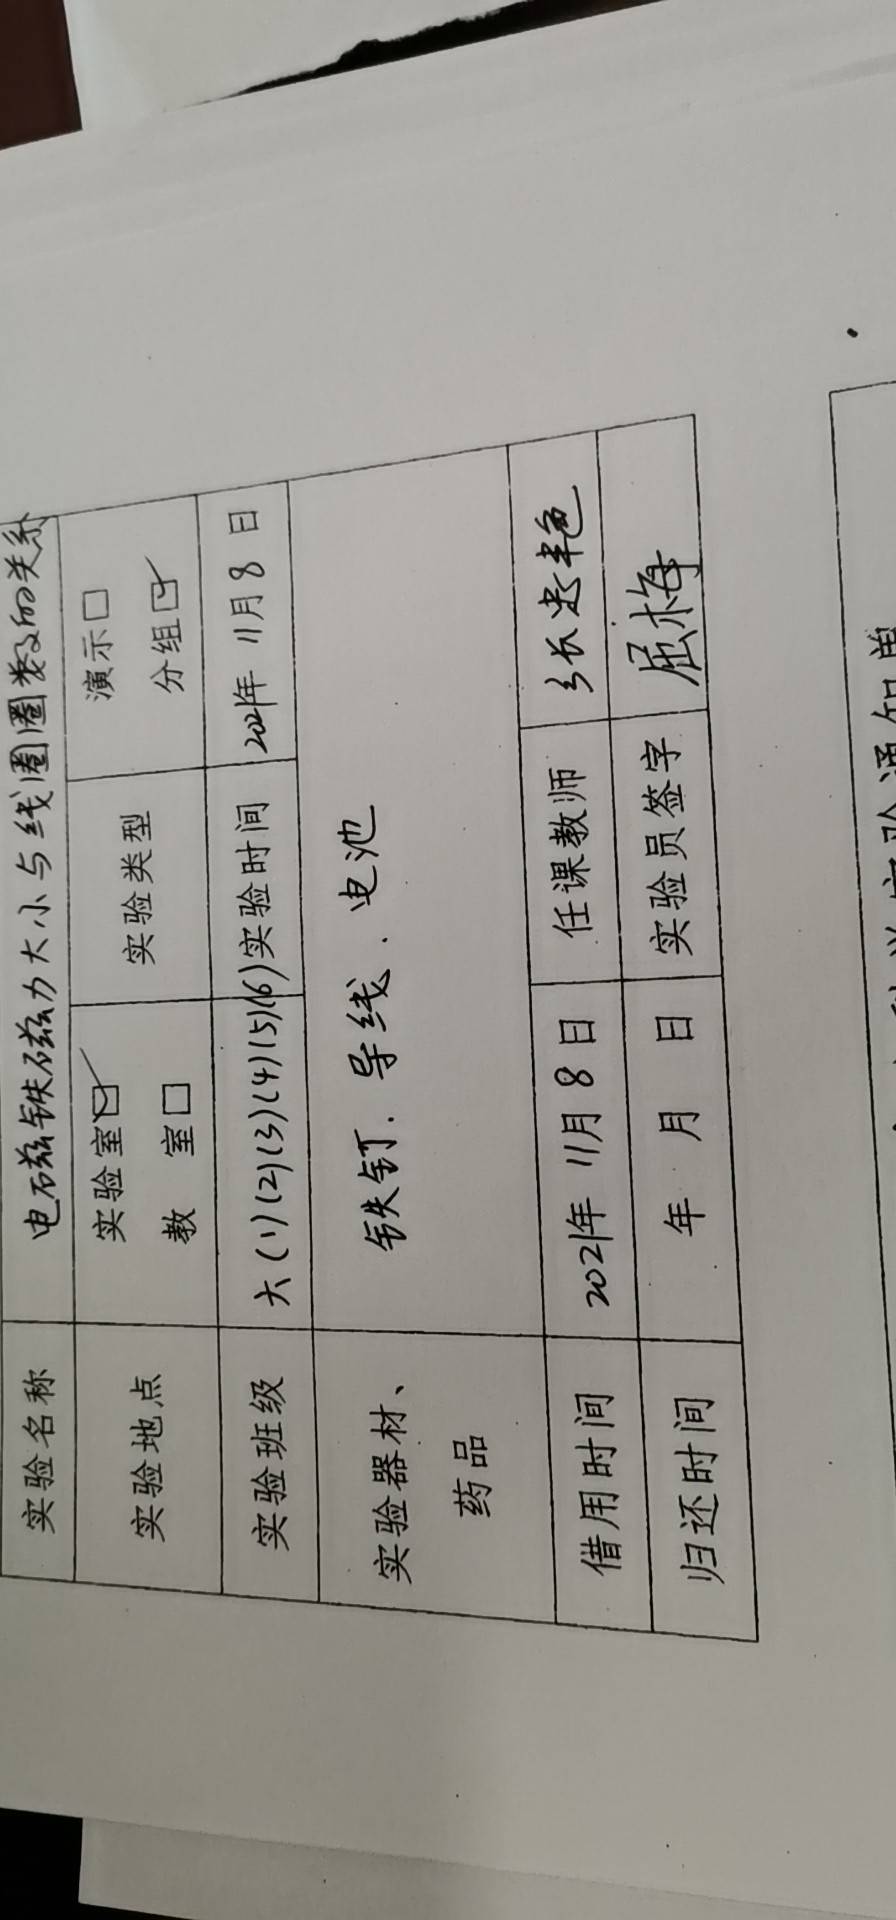 实验名称 电磁铁磁力大小与线圈圈数的关系
实验地点 实验室☑ 教 室□ 实验类型 演示□ 分组☑
实验班级 六(1)(2)(3)(4)(5)(6) 实验时间 2021年 11月 8日
实验器材、
药品 铁钉、导线、电池
借用时间 2021年 11月 8日 任课教师 张忠艳
归还时间 年 月 日 实验员签字 屈梅
实验通知单